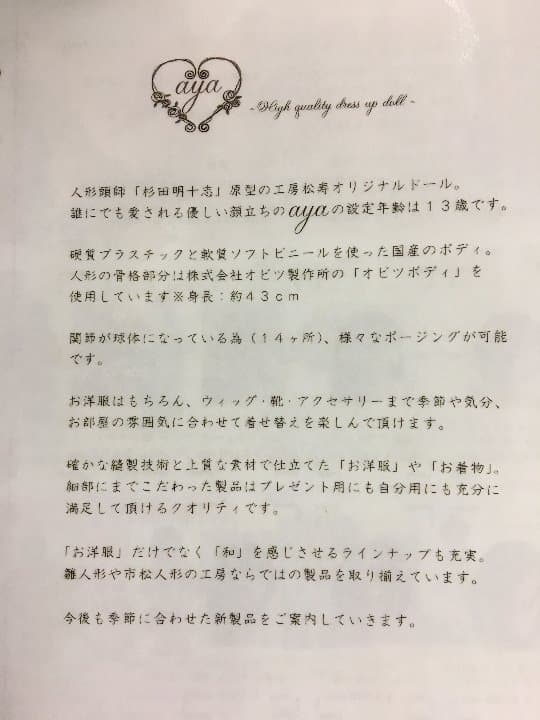 aya
~High quality dress up doll~
人形頭師「杉田明十志」原型の工房松寿オリジナルドール。
誰にでも愛される優しい顔立ちのayaの設定年齢は１３歳です。
硬質プラスチックと軟質ソフトビニールを使った国産のボディ。
人形の骨格部分は株式会社オビツ製作所の「オビツボディ」を
使用しています※身長：約４３ｃｍ
関節が球体になっている為（１４ヶ所）、様々なポージングが可能
です。
お洋服はもちろん、ウィッグ・靴・アクセサリーまで季節や気分、
お部屋の雰囲気に合わせて着せ替えを楽しんで頂けます。
確かな縫製技術と上質な素材で仕立てた「お洋服」や「お着物」。
細部にまでこだわった製品はプレゼント用にも自分用にも充分に
満足して頂けるクオリティです。
「お洋服」だけでなく「和」を感じさせるラインナップも充実。
雛人形や市松人形の工房ならではの製品を取り揃えています。
今後も季節に合わせた新製品をご案内していきます。